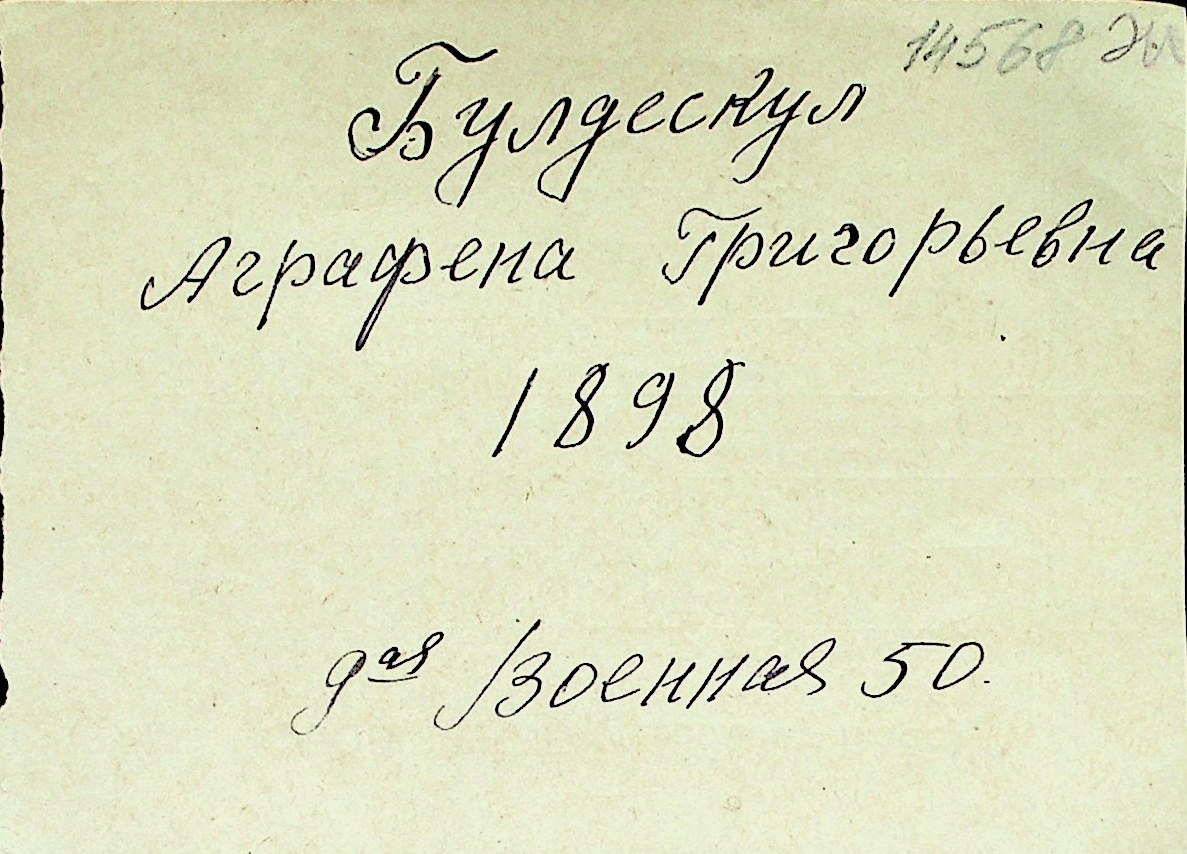 14568
Булдескул
Аграфена Григорьевна
1898
9ая Военная 50.